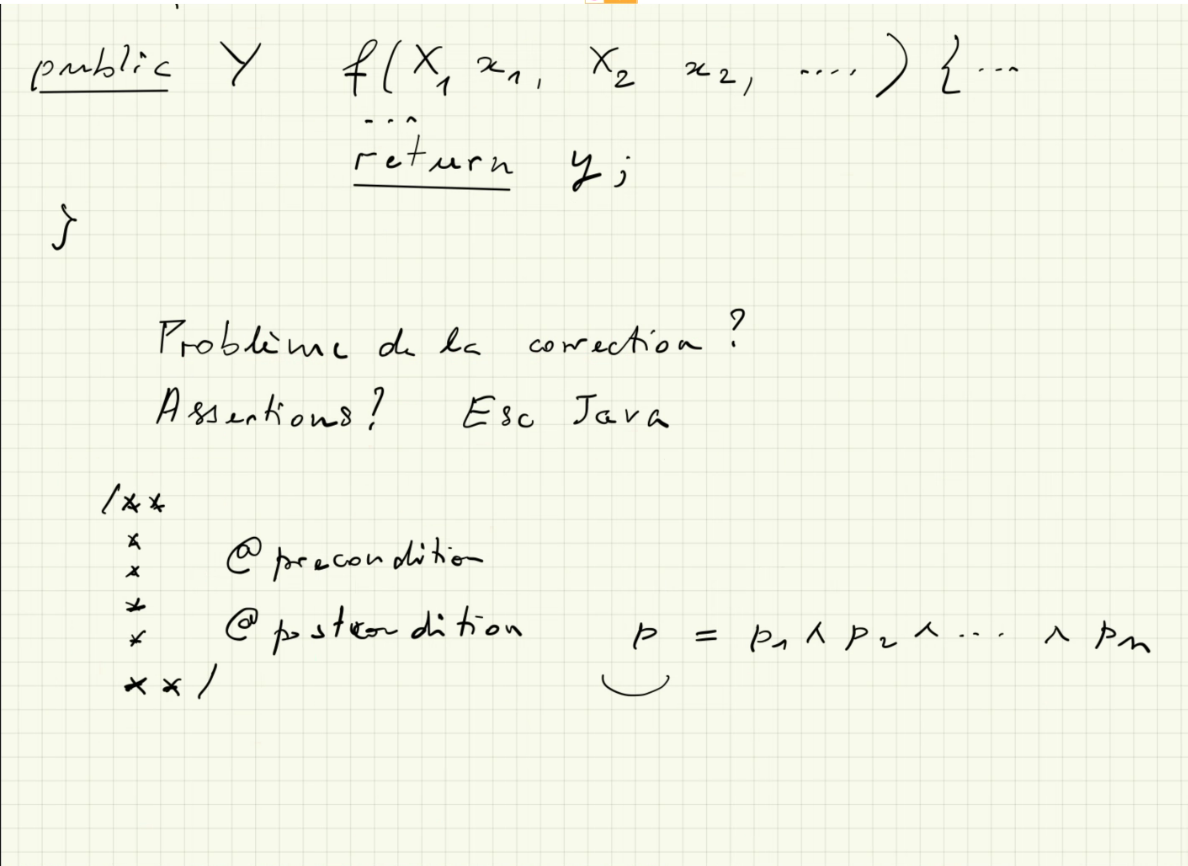 public Y f(X₁ x₁, X₂ x₂, ....) {...
...
return y;
}
Problème de la correction ?
Assertions ? Esc Java
/**
*
* @precondition
*
* @postcondition p = p₁ ∧ p₂ ∧ ... ∧ pₙ
**/